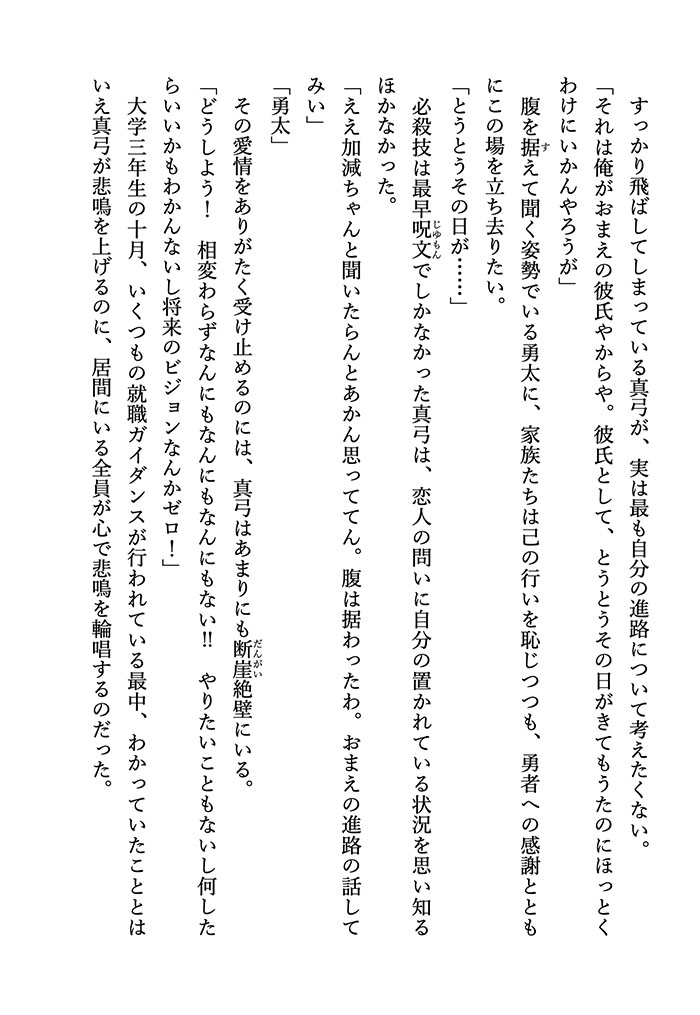 すっかり飛ばしてしまっている真弓が、実は最も自分の進路について考えたくない。
「それは俺がおまえの彼氏やからや。彼氏として、とうとうその日がきてもうたのにほっとく
わけにいかんやろうが」
腹を据えて聞く姿勢でいる勇太に、家族たちは己の行いを恥じつつも、勇者への感謝ととも
にこの場を立ち去りたい。
「とうとうその日が……」
必殺技は最早呪文でしかなかった真弓は、恋人の問いに自分の置かれている状況を思い知る
ほかなかった。
「ええ加減ちゃんと聞いたらんとあかん思っててん。腹は据わったわ。おまえの進路の話して
みい」
「勇太」
その愛情をありがたく受け止めるのには、真弓はあまりにも断崖絶壁にいる。
「どうしよう！　相変わらずなんにもなんにもなんにもない!!　やりたいこともないし何した
らいいかもわかんないし将来のビジョンなんかゼロ！」
大学三年生の十月、いくつもの就職ガイダンスが行われている最中、わかっていたこととは
いえ真弓が悲鳴を上げるのに、居間にいる全員が心で悲鳴を輪唱するのだった。